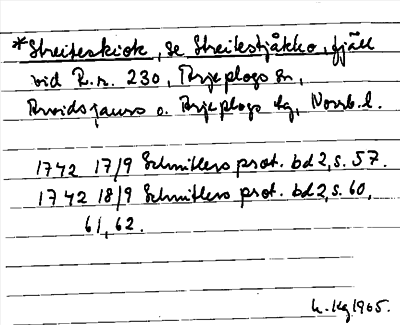 *Streiteskiok, se Streitestjåkko, fjäll
vid R.r. 230, Arjeplogs sn,
Arvidsjaurs o. Arjeplogs tg, Norrb.l.
1742 17/9 Schnitlers prot. bd 2, s. 57.
1742 18/9 Schnitlers prot. bd 2, s. 60,
61, 62.
h. Kg 1965.